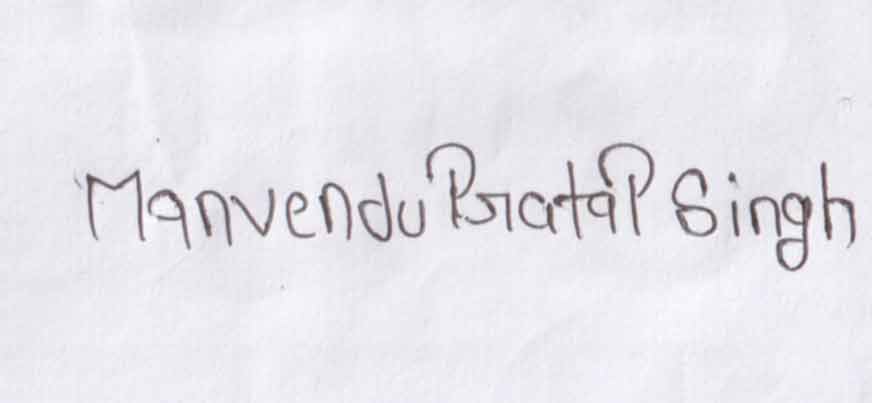 Manvendu Pratap Singh